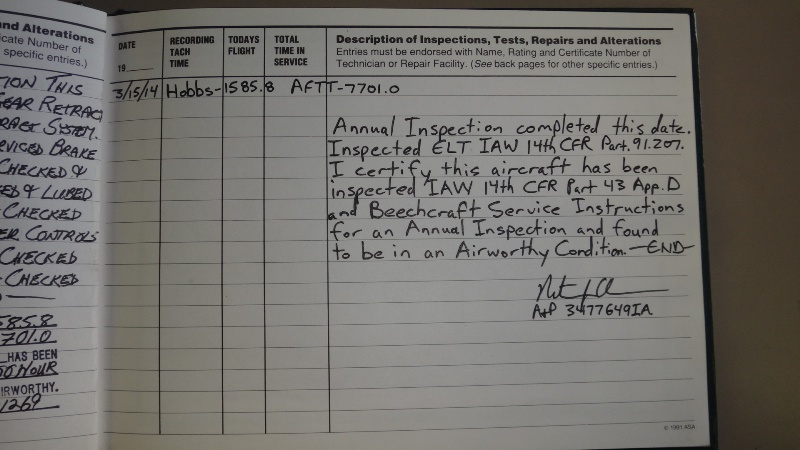 nd Alterations
cate Number of
specific entries.)
ION THIS
GEAR RETRACT
SYSTEM.
BRAKE
CHECKED &
ED & LUBED
CHECKED
ER CONTROLS
CHECKED
- CHECKED
585.8
701.0
HAS BEEN
00 HOUR
IRWORTHY.
1269
DATE
19
RECORDING
TACH
TIME
TODAYS
FLIGHT
TOTAL
TIME IN
SERVICE
Description of Inspections, Tests, Repairs and Alterations
Entries must be endorsed with Name, Rating and Certificate Number of
Technician or Repair Facility. (See back pages for other specific entries.)
3/15/14 Hobbs-1585.8 AFTT-7701.0
Annual Inspection completed this date.
Inspected ELT IAW 14th CFR Part.91.207.
I certify this aircraft has been
inspected IAW 14th CFR Part 43 App.D
and Beechcraft Service Instructions
for an Annual Inspection and found
to be in an Airworthy Condition. -END-
A+P 3477649IA
© 1991 ASA